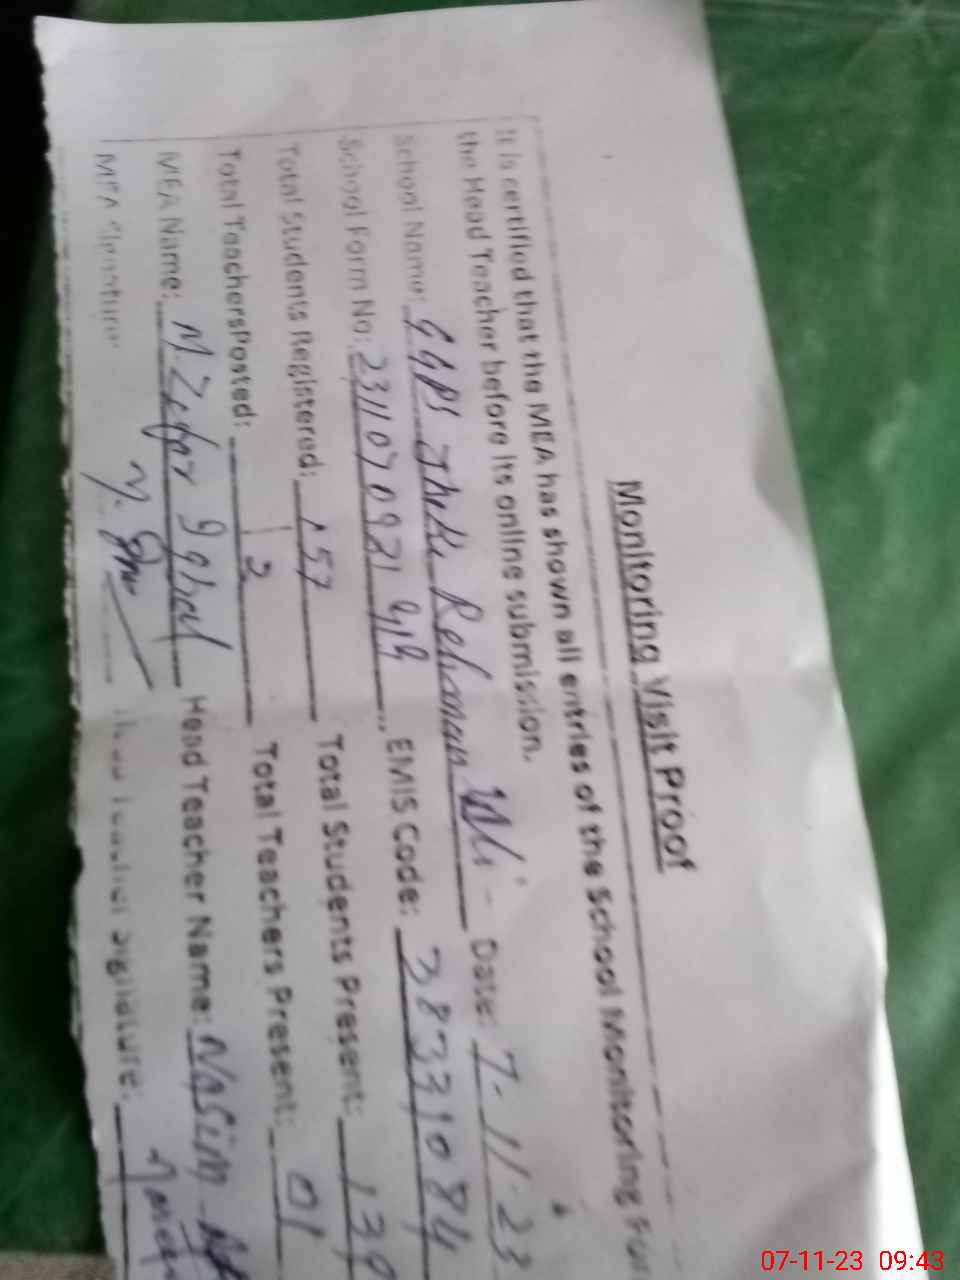 Monitoring Visit Proof
It is certified that the MEA has shown all entries of the School Monitoring For
the Head Teacher before its online submission.
School Name: GGPS Rehman Date: 7-11-23
School Form No: EMIS Code: 38331084
Total Students Registered: 157 Total Students Present: 139
Total TeachersPosted: 2 Total Teachers Present: 01
MEA Name: M. Zafar Iqbal Head Teacher Name: Nasim
MEA Signature: Head Teacher Signature:
07-11-23 09:43